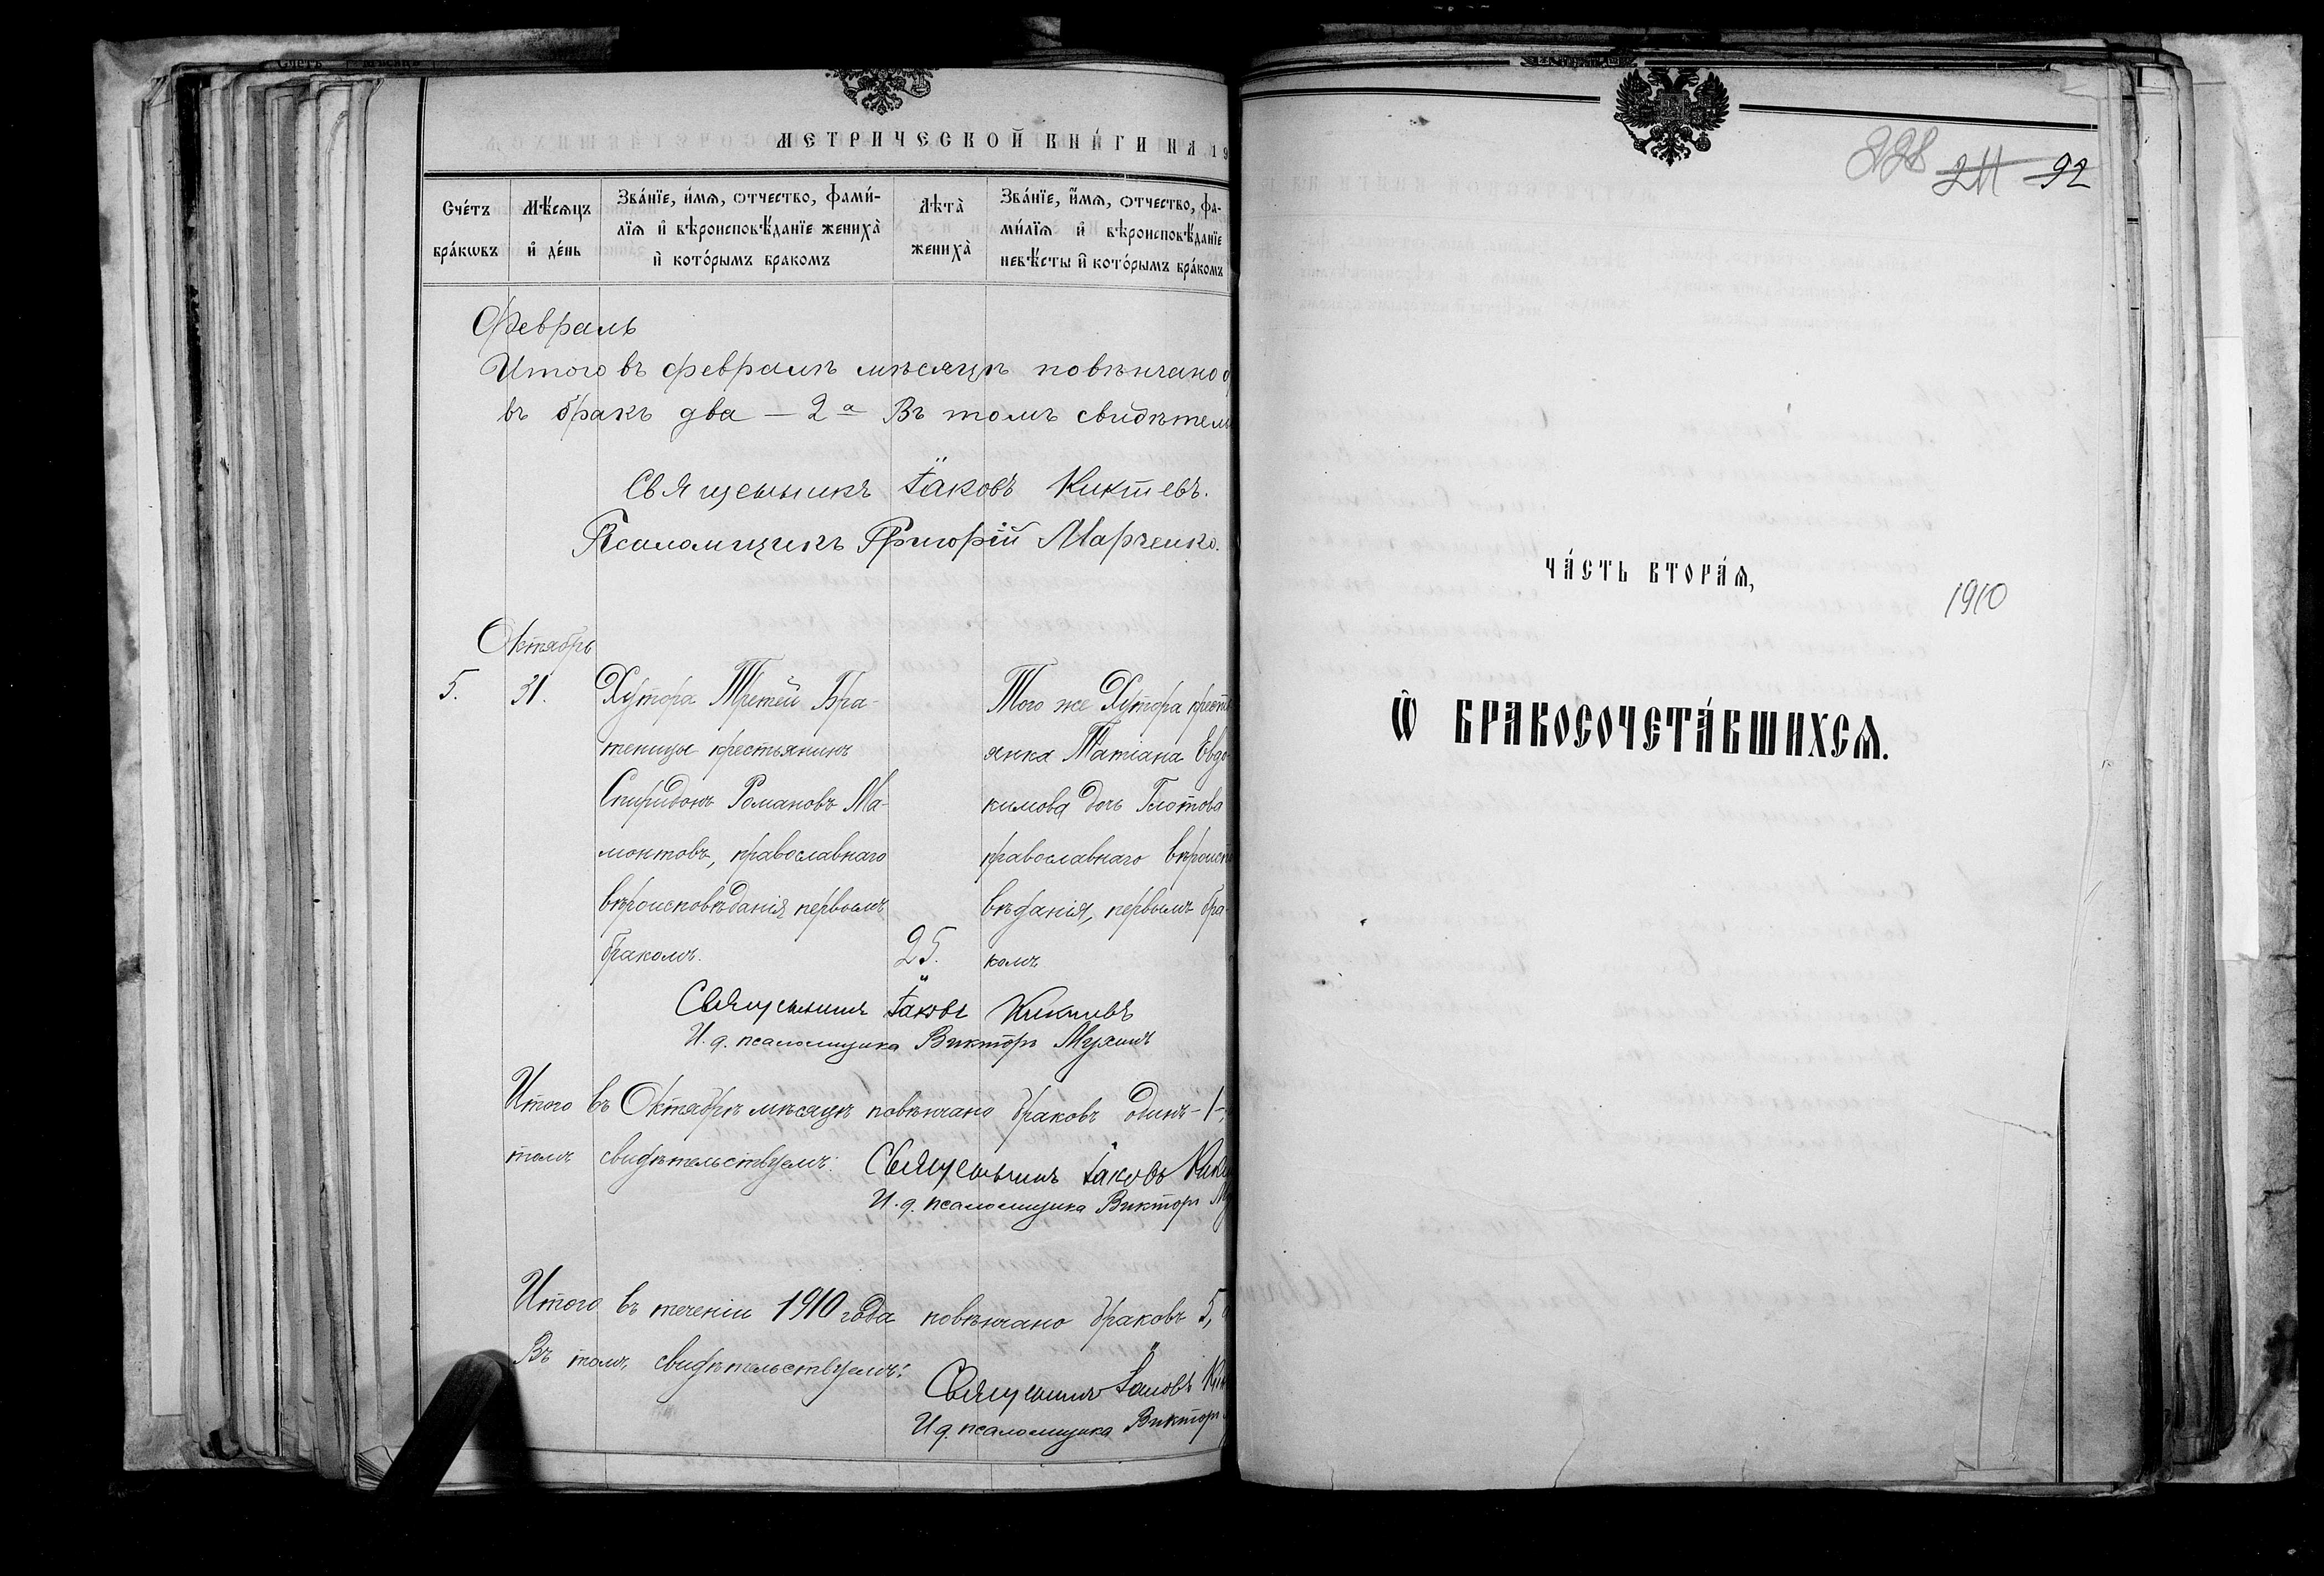 МЕТРИЧЕСКОЙ КНИ́ГИ НА 19
Сче́тъ бра́кωвъ
Мѣ́сѧцъ и҆ де́нь
Зва́нїе, и҆́мѧ, ѻтчество, фами́-
лїѧ и҆ вѣроисповѣ́данїе жениха̀
и҆ кото́рымъ бракомъ
Лѣта̀ жениха̀
Зва́нїе, и҆́мѧ, ѻтчество, фа-
ми́лїѧ и҆ вѣроисповѣ́данїе
невѣ́сты и҆ кото́рымъ бра́комъ
Февраль
Итого въ февралѣ мѣсяцѣ повѣнчано
въ бракъ два — 2а Въ томъ свидѣтель
Священникъ Іаковъ Киктевъ.
Псаломщикъ Григорій Марченко.
Октябрь
5. 31. Хутора Третей Бра-
теницы крестьянинъ
Спиридонъ Романовъ Ма-
монтовъ, православнаго
вѣроисповѣданія первымъ
бракомъ.
25.
Того же Хутора крест
янка Татіана Евдо-
кимова дочь Глотова
православнаго вѣроиспо
вѣданія, первымъ бра-
комъ
Священникъ Іаковъ Киктевъ
И. д. псаломщика Викторъ Мухинъ
Итого въ Октябрѣ мѣсяцѣ повѣнчано браковъ одинъ - 1 -,
томъ свидѣтельствуемъ: Священникъ Іаковъ Кик
И. д. псаломщика Викторъ Му
Итого въ теченіи 1910 года повѣнчано браковъ 5,
Въ томъ свидѣтельствуемъ:
Священникъ Іаковъ Ки
И д. псаломщика Викторъ
228 211 92
ЧА́СТЬ ВТОРА́Ѧ,
1910
Ѽ БРАКОСОЧЕТА́ВШИХСѦ.